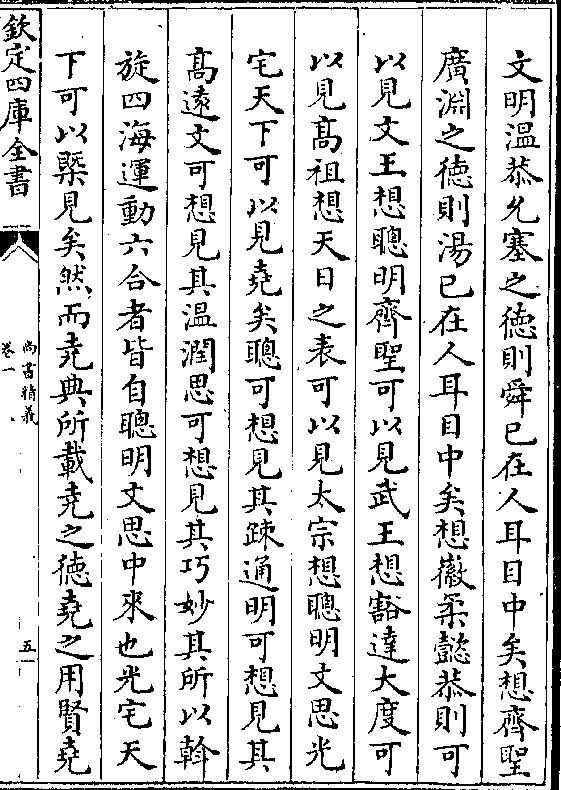 文明温恭允塞之徳則舜已在人耳目中矣想齊聖
廣淵之徳則湯已在人耳目中矣想徽柔懿恭則可
以見文王想聰明齊聖可以見武王想豁達大度可
以見髙祖想天日之表可以見太宗想聰明文思光
宅天下可以見堯矣聰可想見其疎通明可想見其
髙逺文可想見其温潤思可想見其巧妙其所以斡
旋四海運動六合者皆自聰明文思中來也光宅天
下可以槩見矣然而堯典所載堯之徳堯之用賢堯
欽定四庫全書
尚書精義
卷一
五